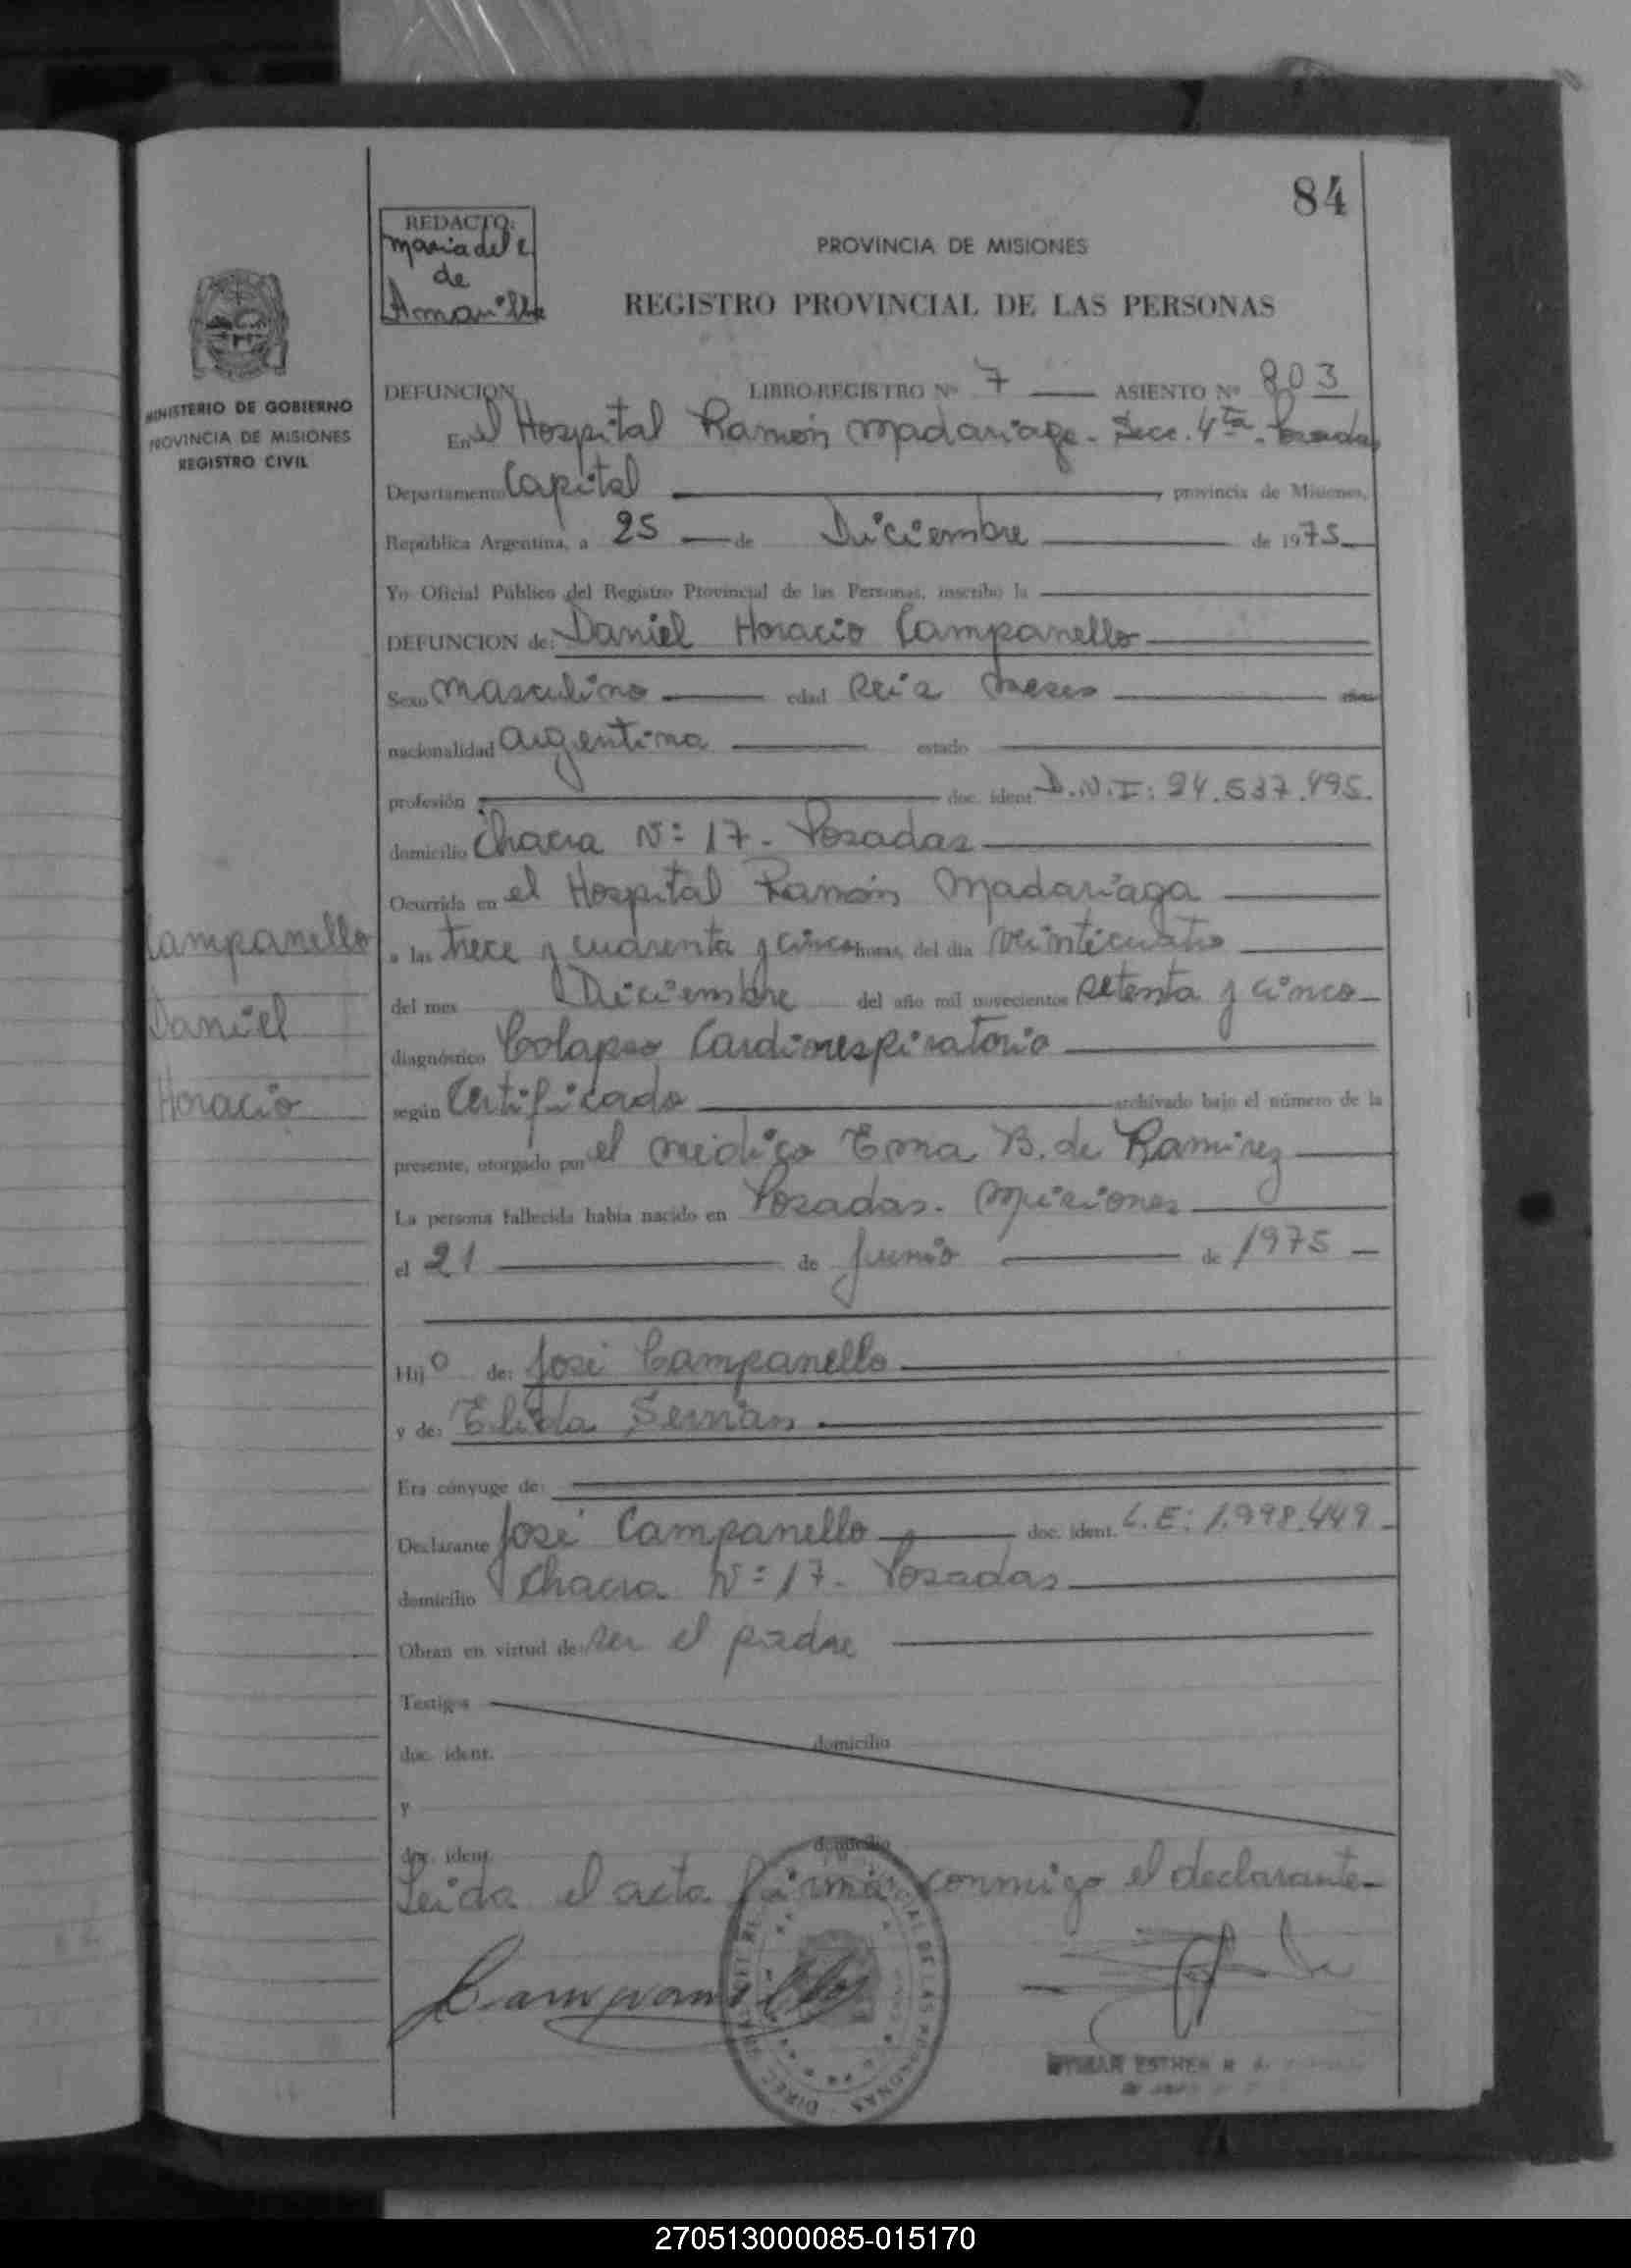 84
REDACTO:
Maria del C.
de
Amarilla
PROVINCIA DE MISIONES
REGISTRO PROVINCIAL DE LAS PERSONAS
MINISTERIO DE GOBIERNO
PROVINCIA DE MISIONES
REGISTRO CIVIL
DEFUNCION LIBRO-REGISTRO Nº 7 ASIENTO Nº 803
En el Hospital Ramón Madariaga. Secc. 4ta. Posadas
Departamento Capital, provincia de Misiones,
República Argentina, a 25 de Diciembre de 1975
Yo Oficial Público del Registro Provincial de las Personas, inscribo la
DEFUNCION de: Daniel Horacio Campanello
Sexo Masculino edad seis meses
nacionalidad argentina estado
profesión doc. ident. D.N.I: 24.537.495.
domicilio Chacra Nº 17 - Posadas
Ocurrida en el Hospital Ramón Madariaga
a las trece y cuarenta y cinco horas, del día veinticuatro
del mes Diciembre del año mil novecientos setenta y cinco
diagnóstico Colapso Cardiorespiratorio
según Certificado archivado bajo el número de la
presente, otorgado por el médico Ema B. de Ramirez
La persona fallecida había nacido en Posadas. Misiones
el 21 de Junio de 1975
Hijo de: José Campanello
y de: Elida Serrán
Era cónyuge de:
Declarante José Campanello doc. ident. L.E: 1.998.449
domicilio Chacra Nº 17 - Posadas
Obran en virtud de: ser el padre
Testigos
doc. ident. domicilio
y
doc. ident. domicilio
Leida el acta firma conmigo el declarante
Campanello
Campanello
Daniel
Horacio
ESTHER
270513000085-015170